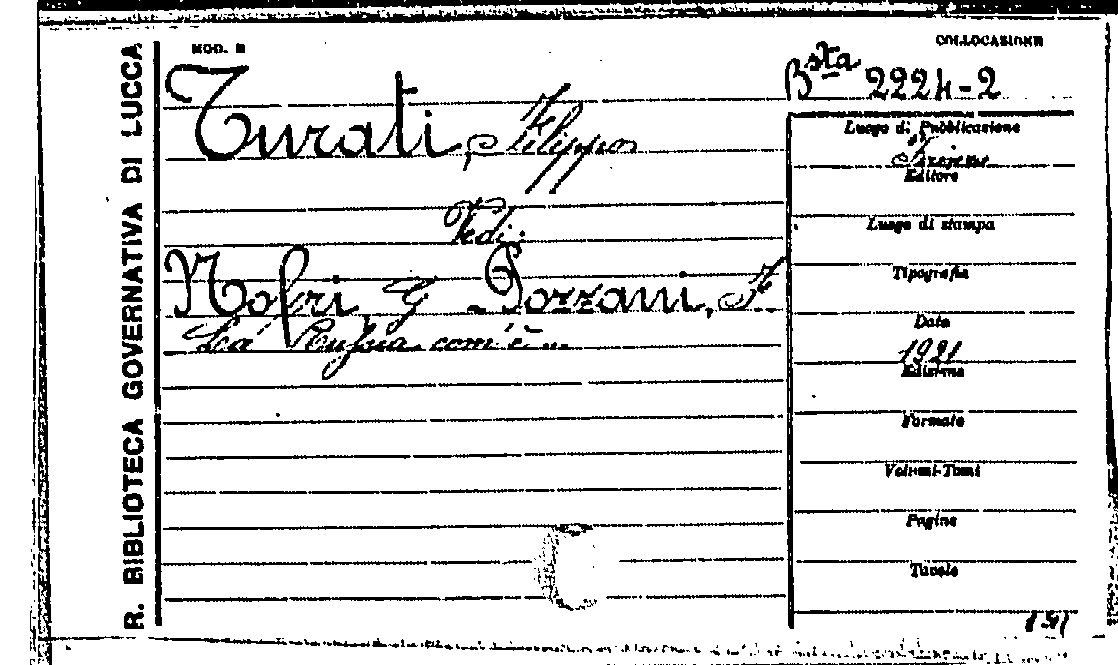 R. BIBLIOTECA GOVERNATIVA DI LUCCA
MOD. B
COLLOCAZIONE
Bsta 2224-2
Turati, Filippo
Vedi:
Nofri, G Pozzani, F.
La Russia com'è...
Luogo di Pubblicazione
Firenze
Editore
Luogo di stampa
Tipografia
Data
1921
Edizione
Formato
Volumi-Tomi
Pagine
Tavole